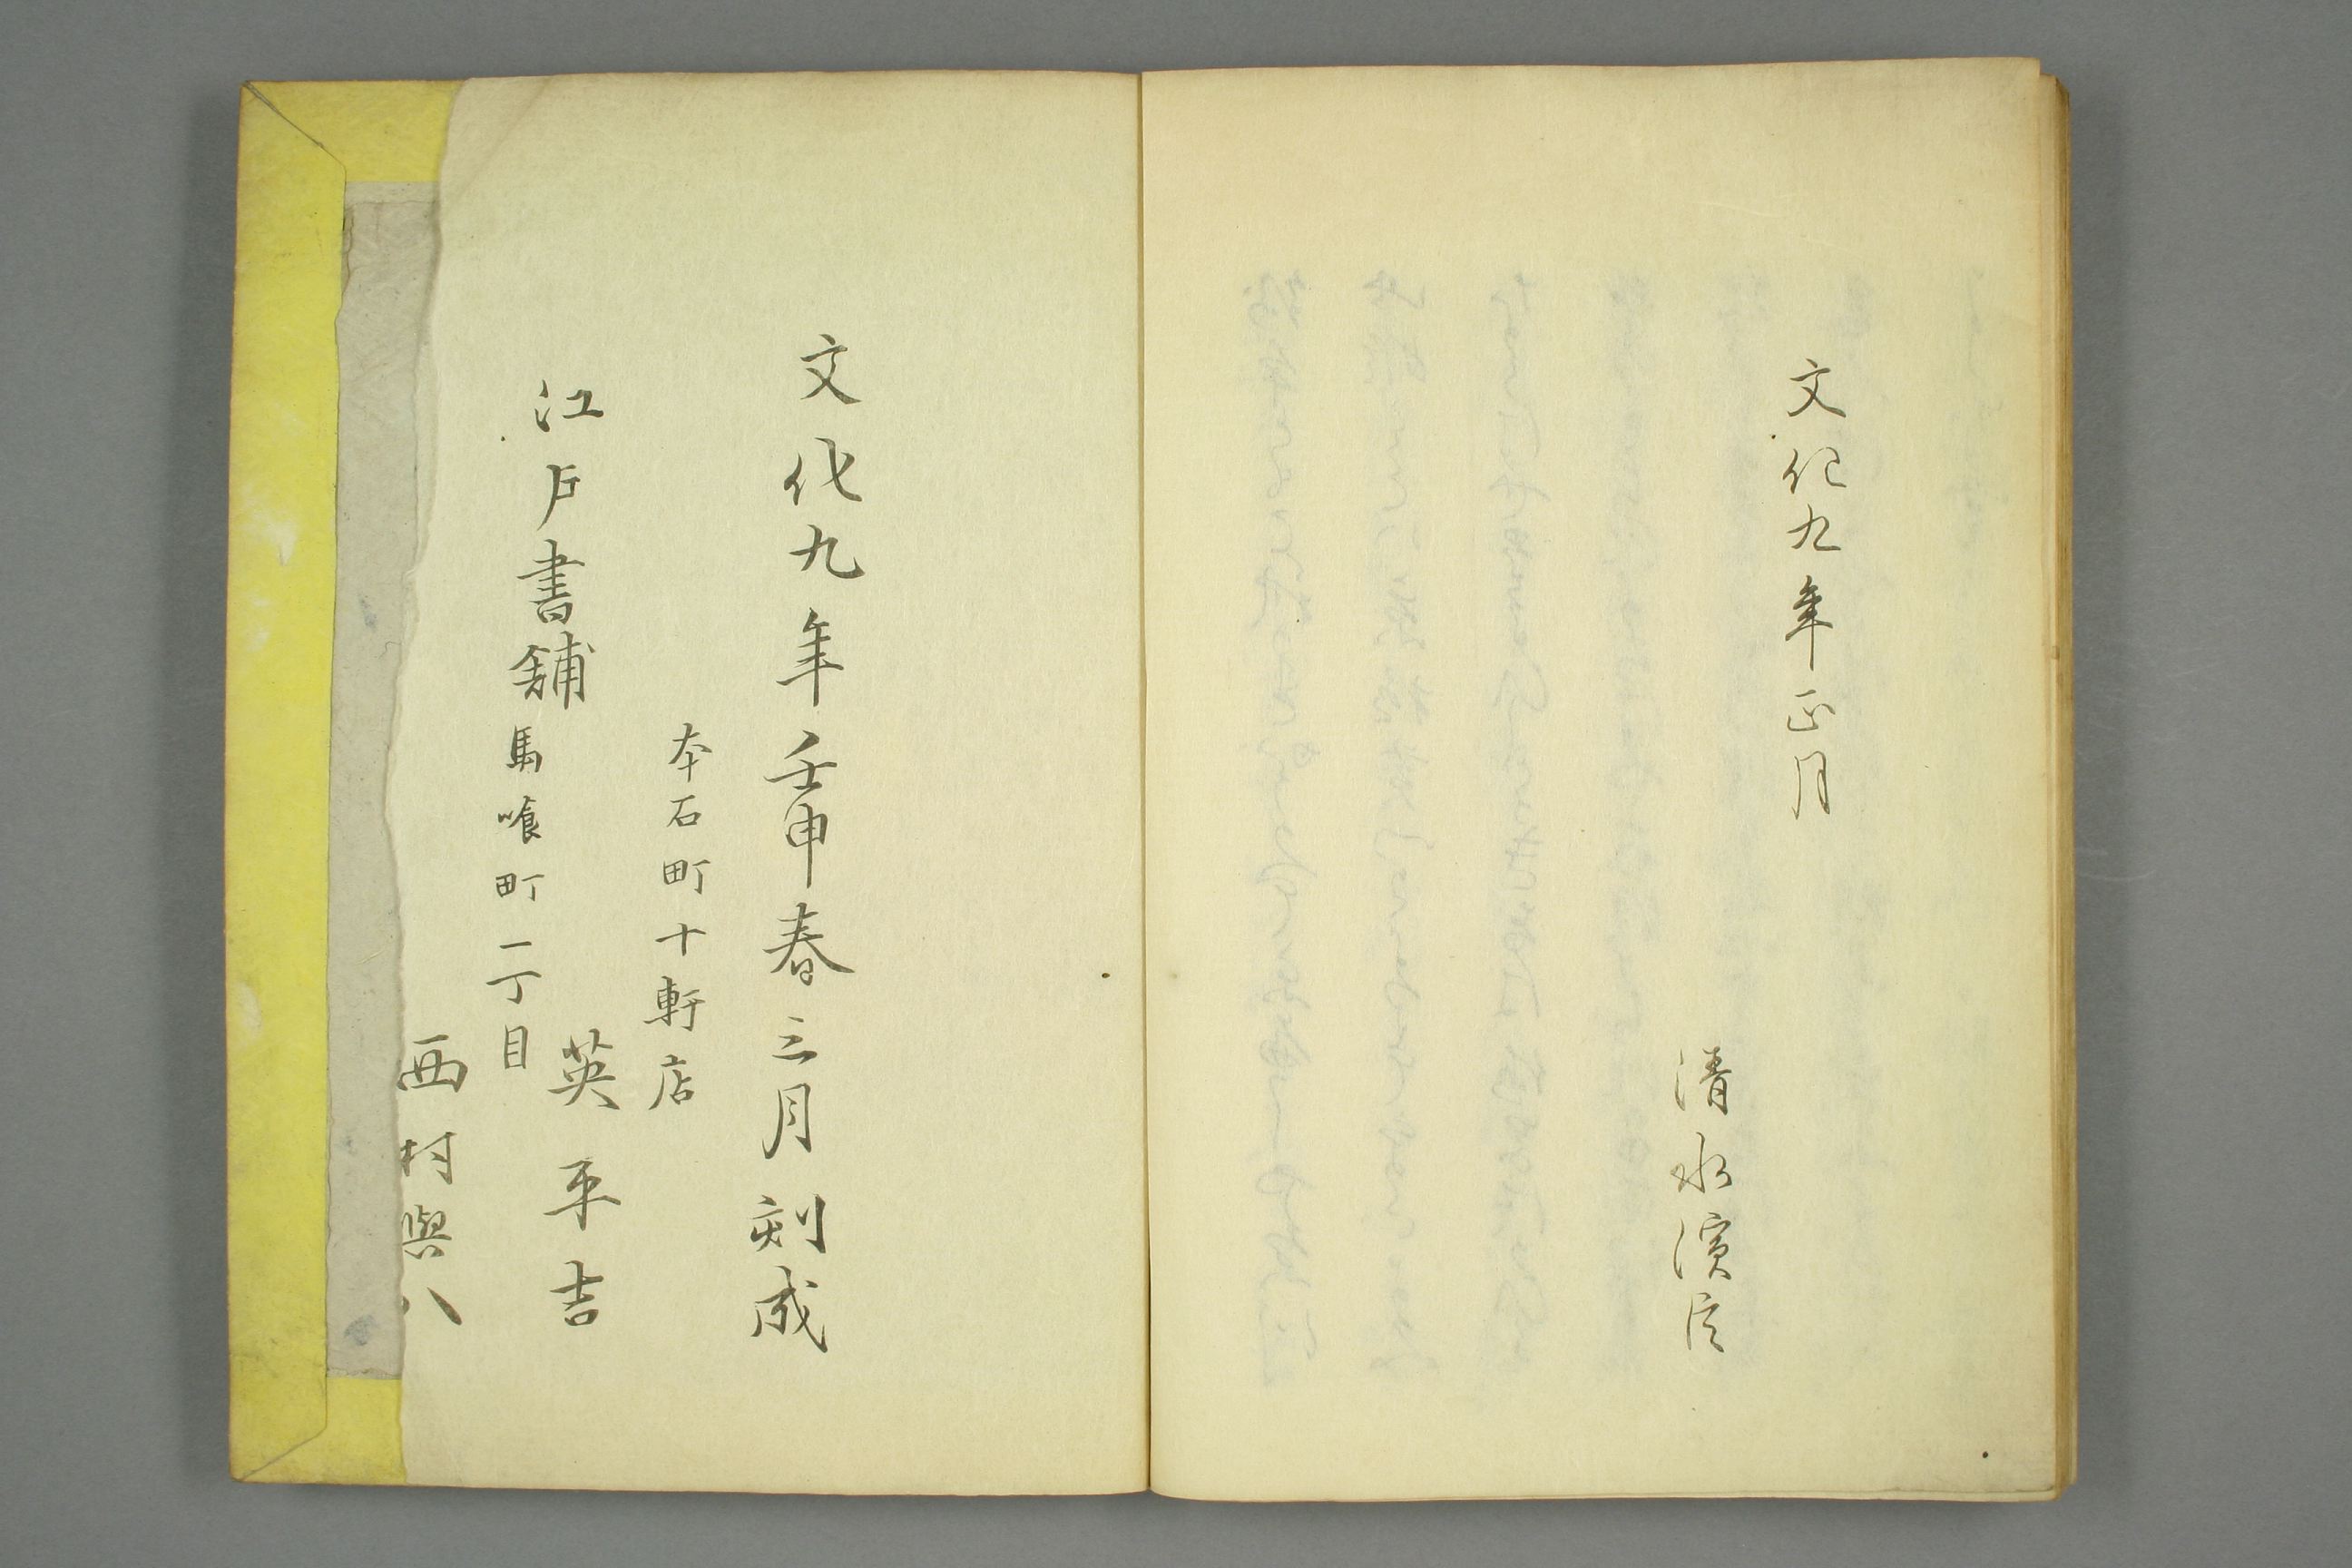 文化九年正月
清水濱臣
文化九年壬申春三月刻成
本石町十軒店
英平吉
江戸書舗
馬喰町一丁目
西村與八